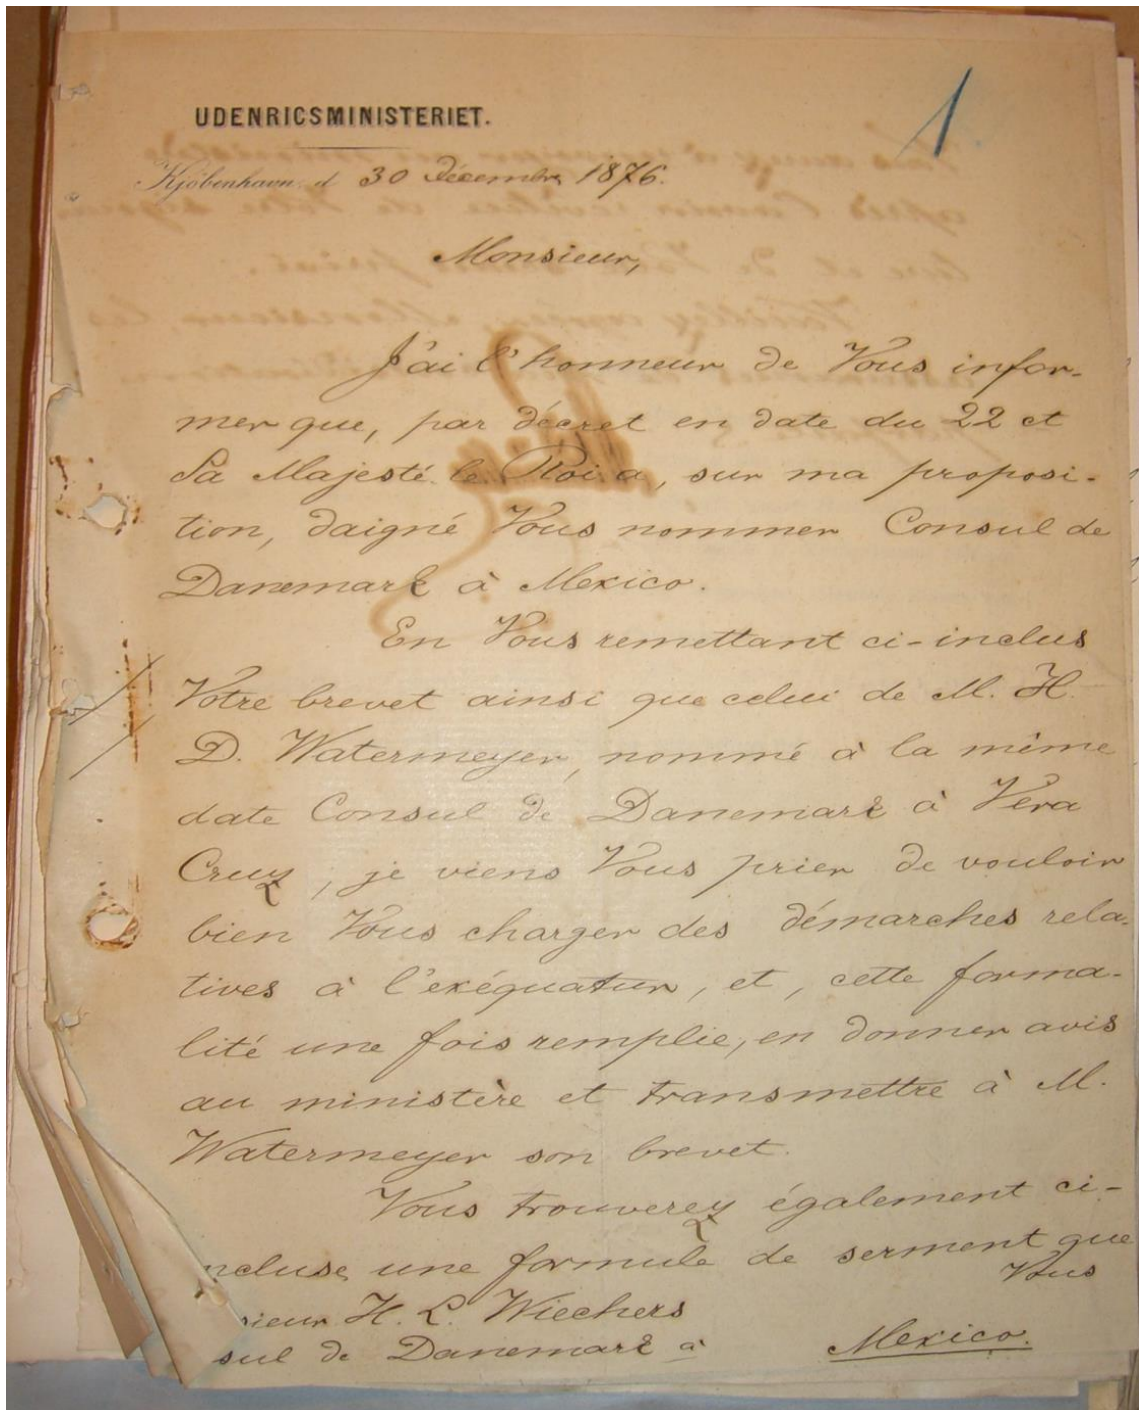 1
UDENRIGSMINISTERIET.
Kjöbenhavn, d 30 Décembre 1876.
Monsieur,
J'ai l'honneur de Vous infor-
mer que, par décret en date du 22 ct
Sa Majesté le Roi a, sur ma proposi-
tion, daigné Vous nommer Consul de
Danemark à Mexico.
En Vous remettant ci-inclus
Votre brevet ainsi que celui de M. H.
D. Watermeyer, nommé à la même
date Consul de Danemark à Vera
Cruz, je viens Vous prier de vouloir
bien Vous charger des démarches rela-
tives à l'exéquatur, et, cette forma-
lité une fois remplie, en donner avis
au ministère et transmettre à M.
Watermeyer son brevet.
Vous trouverez également ci-
ncluse une formule de serment que
Vous
sieur H. L. Wiechers
sul de Danemark à Mexico.